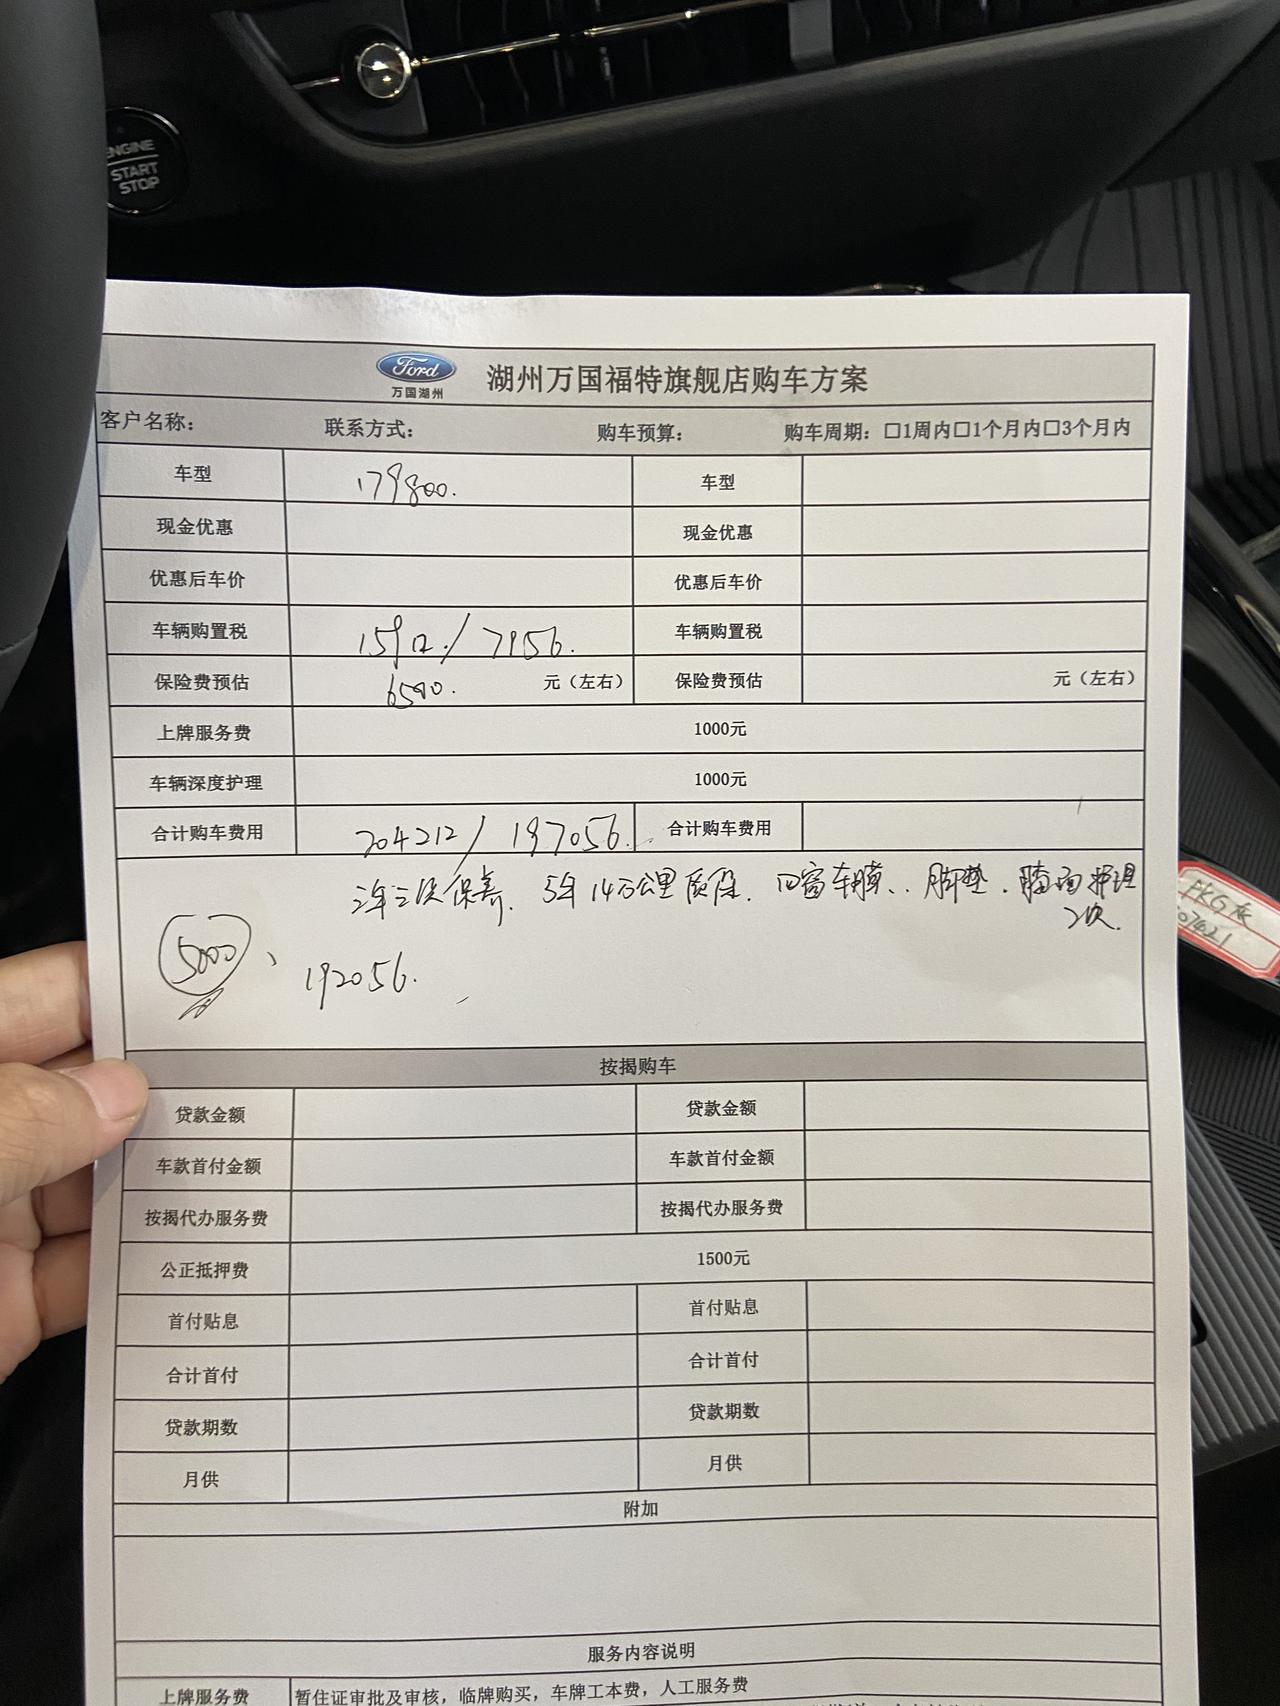 ENGINE
START
STOP
Ford
万国湖州
湖州万国福特旗舰店购车方案
客户名称: 联系方式: 购车预算: 购车周期: □1周内□1个月内□3个月内
车型 179800. 车型
现金优惠 现金优惠
优惠后车价 优惠后车价
车辆购置税 15912./7956. 车辆购置税
保险费预估 6500. 元（左右） 保险费预估 元（左右）
上牌服务费 1000元
车辆深度护理 1000元
合计购车费用 204212/197056. 合计购车费用
三年三次保养. 5年14万公里质保. 四窗车膜、. 脚垫. 漆面护理
2次.
5000、 192056.
按揭购车
贷款金额 贷款金额
车款首付金额 车款首付金额
按揭代办服务费 按揭代办服务费
公正抵押费 1500元
首付贴息 首付贴息
合计首付 合计首付
贷款期数 贷款期数
月供 月供
附加
服务内容说明
上牌服务费 暂住证审批及审核，临牌购买，车牌工本费，人工服务费